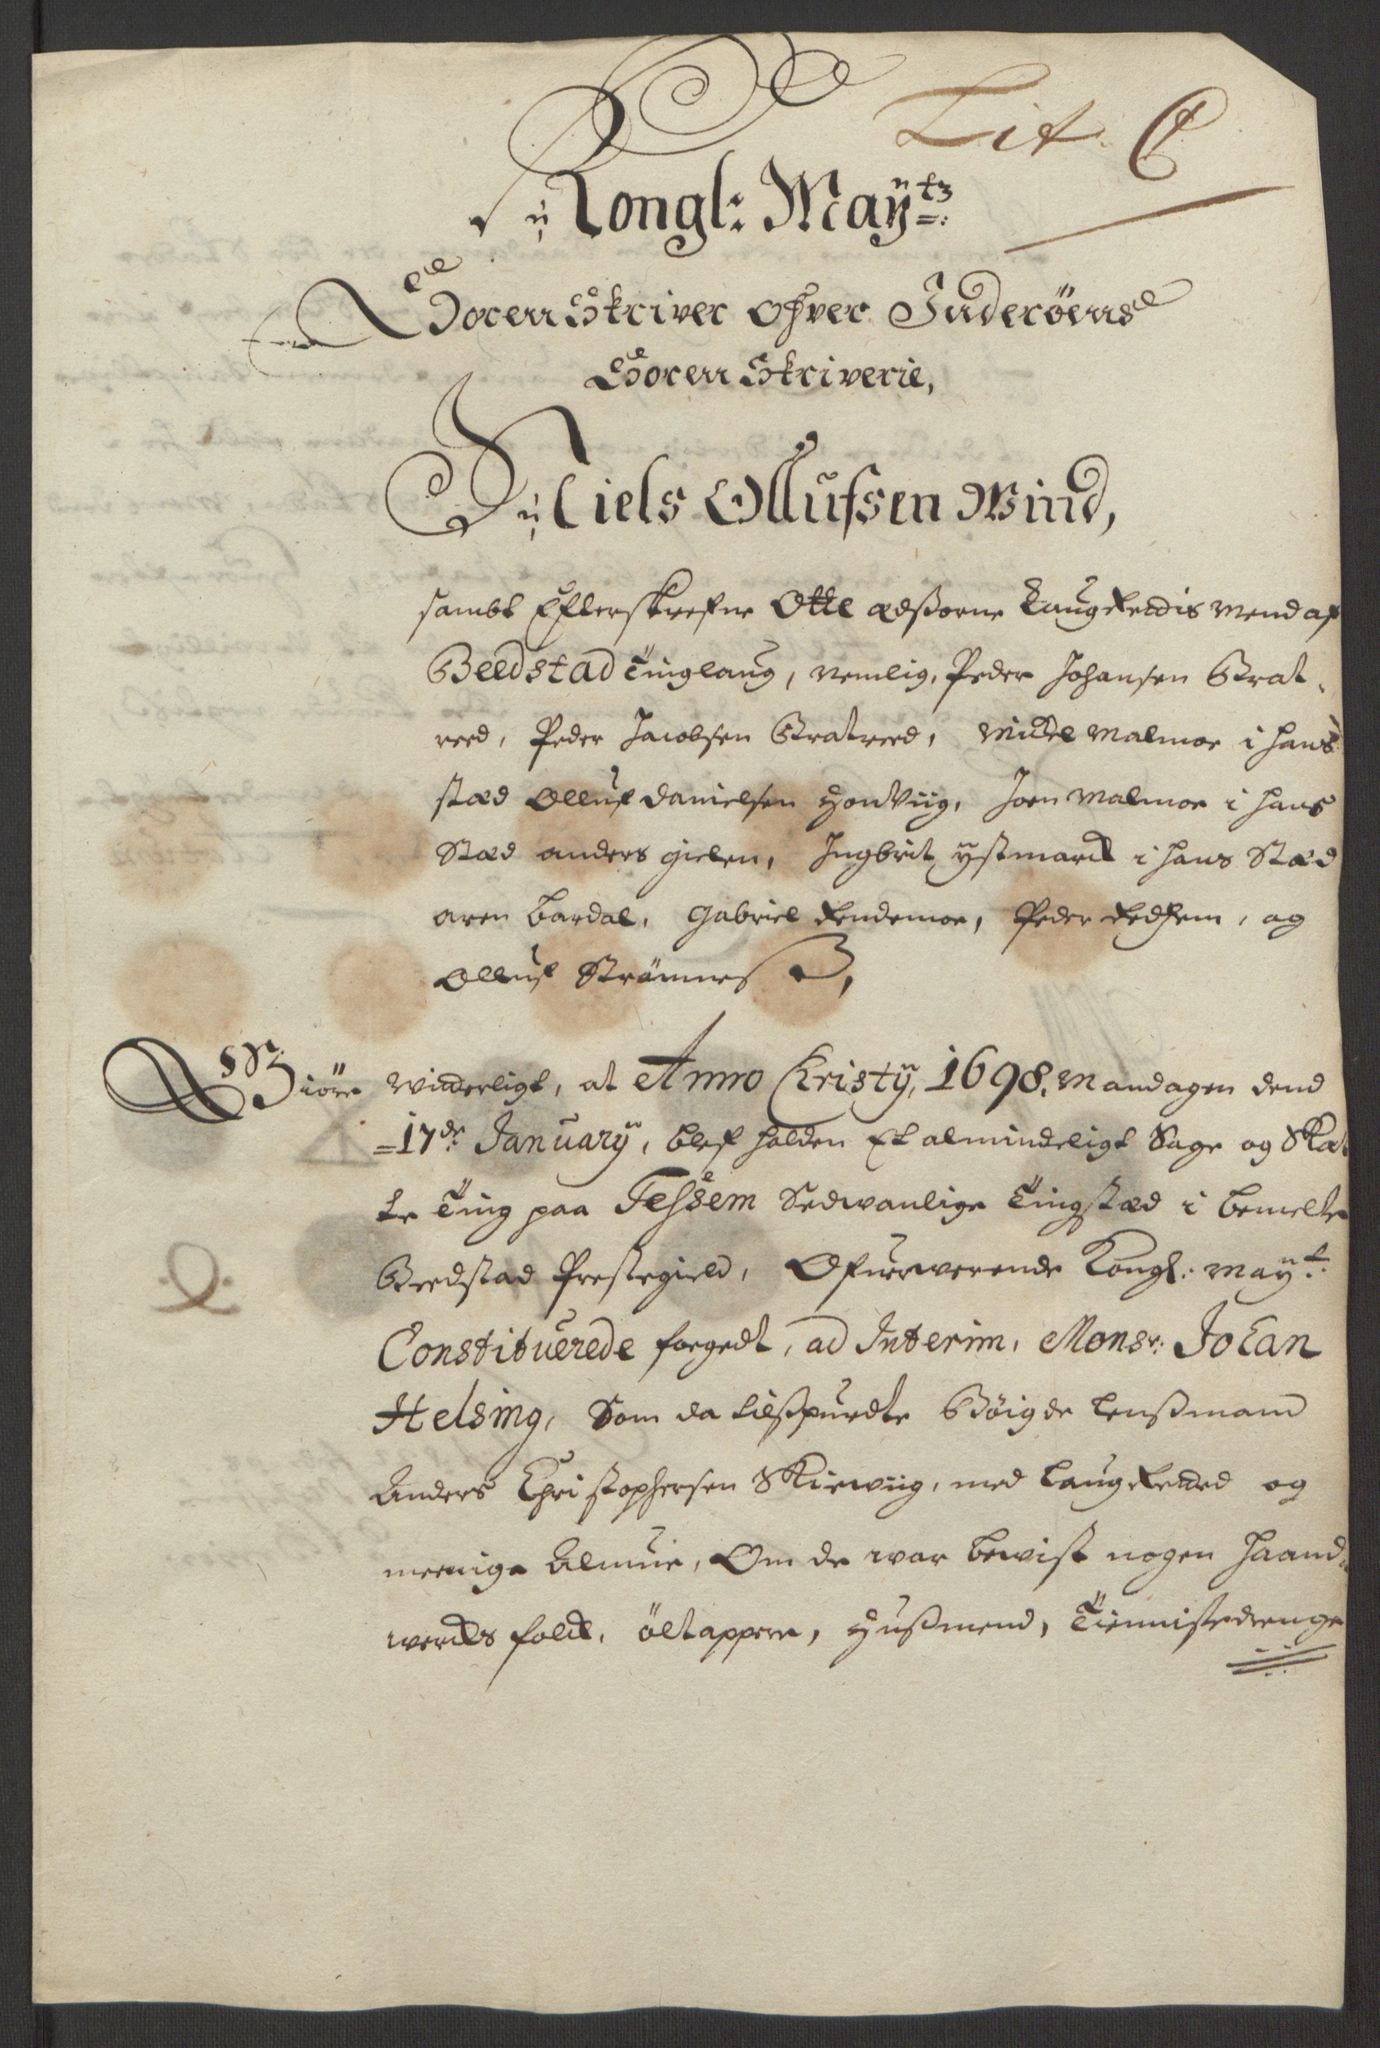 Lit. C
Kongl: Maytz
Sorenskriver ofver Inderöens
Soren Skriverie,
Niels Ollufsen Wind,
sambt Efterskrefne Otte edsorne Laugrettis mend af
Beedstad Tinglaug, nemlig, Peder Johansen Brat-
reed, Peder Jacobsen Bratreed, Mickel Malmoe i hans
stæd Olluf Danielsen Honviig, Joen Malmoe i hans
Stæd anders gielen, Ingbrit ystmarck i hans Stæd
aren Bardal, Gabriel Rendemoe, Peder Redhem, og
Olluf Strömnes,
Giöre Witterligt, at Anno Kristy, 1698, Mandagen dend
17de January, blef holden Et almindeligt Sage og Skat
te Ting paa Fessem Sedwanlige Tingstæd i bemelte
Beedstad Prestegield, Ofverwerende Kongl: Mayt:
Constituerede foegedt, ad Interim, Monsr: Johan
Helsing, Som da tilspurdte Böigde Lensmand
Anders Christophersen Skierviig, med Laugretted og
meenige Almue, Om de war bevist nogen haand-
wercks folck, öltappere, Husmend, Tiennistedrenge